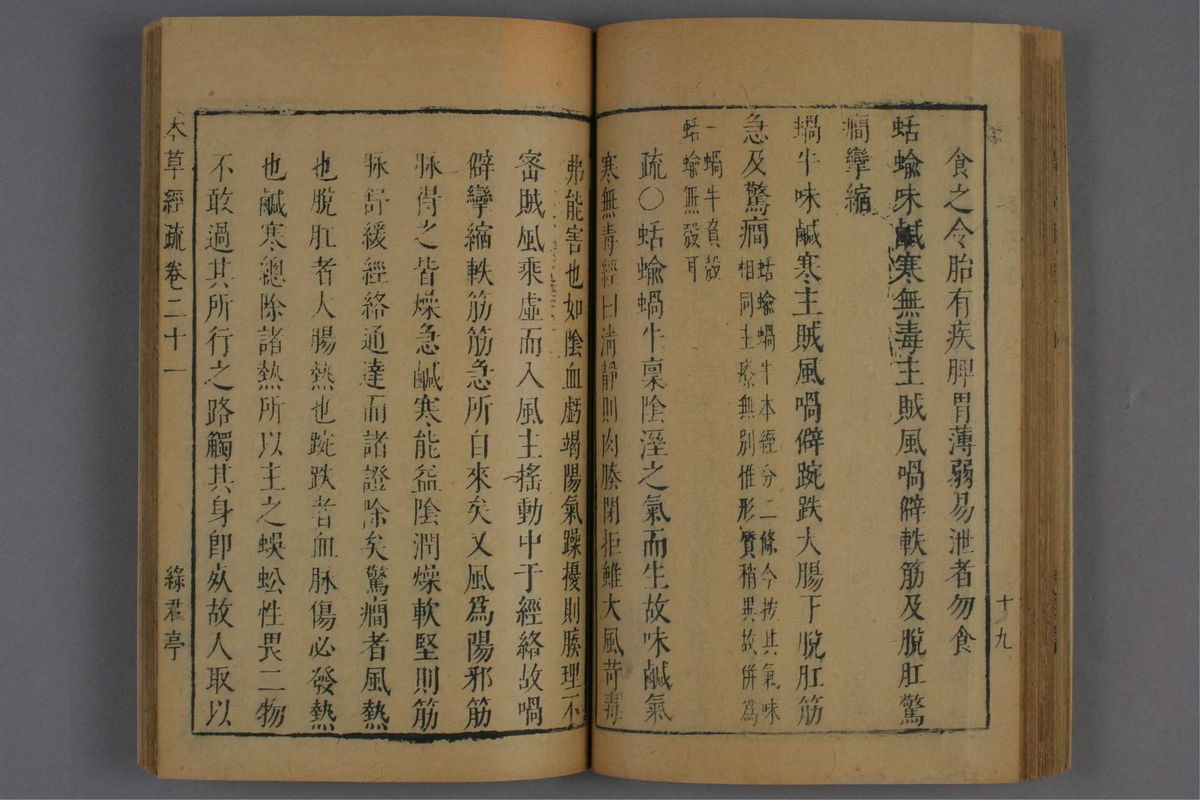 食之令胎有疾脾胃薄弱易泄者勿食
蛞蝓味鹹寒無毒主賊風喎僻軼筋及脫肛驚
癎攣縮
蝸牛味鹹寒主賊風喎僻踠跌大腸下脫肛筋
急及驚癎蛞蝓蝸牛本經分二條今按其氣味
相同主療無別惟形質稍異故併為
一蝸牛負殼
蛞蝓無殼耳
疏〇蛞蝓蝸牛稟陰溼之氣而生故味鹹氣
寒無毒經曰清靜則肉腠閉拒雖大風苛毒
十九
弗能害也如陰血虧竭陽氣躁擾則腠理不
密賊風乘虛而入風主搖動中于經絡故喎
僻攣縮軼筋筋急所自來矣又風為陽邪筋
脉得之皆燥急鹹寒能益陰潤燥軟堅則筋
脉舒緩經絡通達而諸證除矣驚癎者風熱
也脫肛者大腸熱也踠跌者血脉傷必發熱
也鹹寒總除諸熱所以主之蜈蚣性畏二物
不敢過其所行之路觸其身卽死故人取以
本草經疏卷二十一
綠君亭